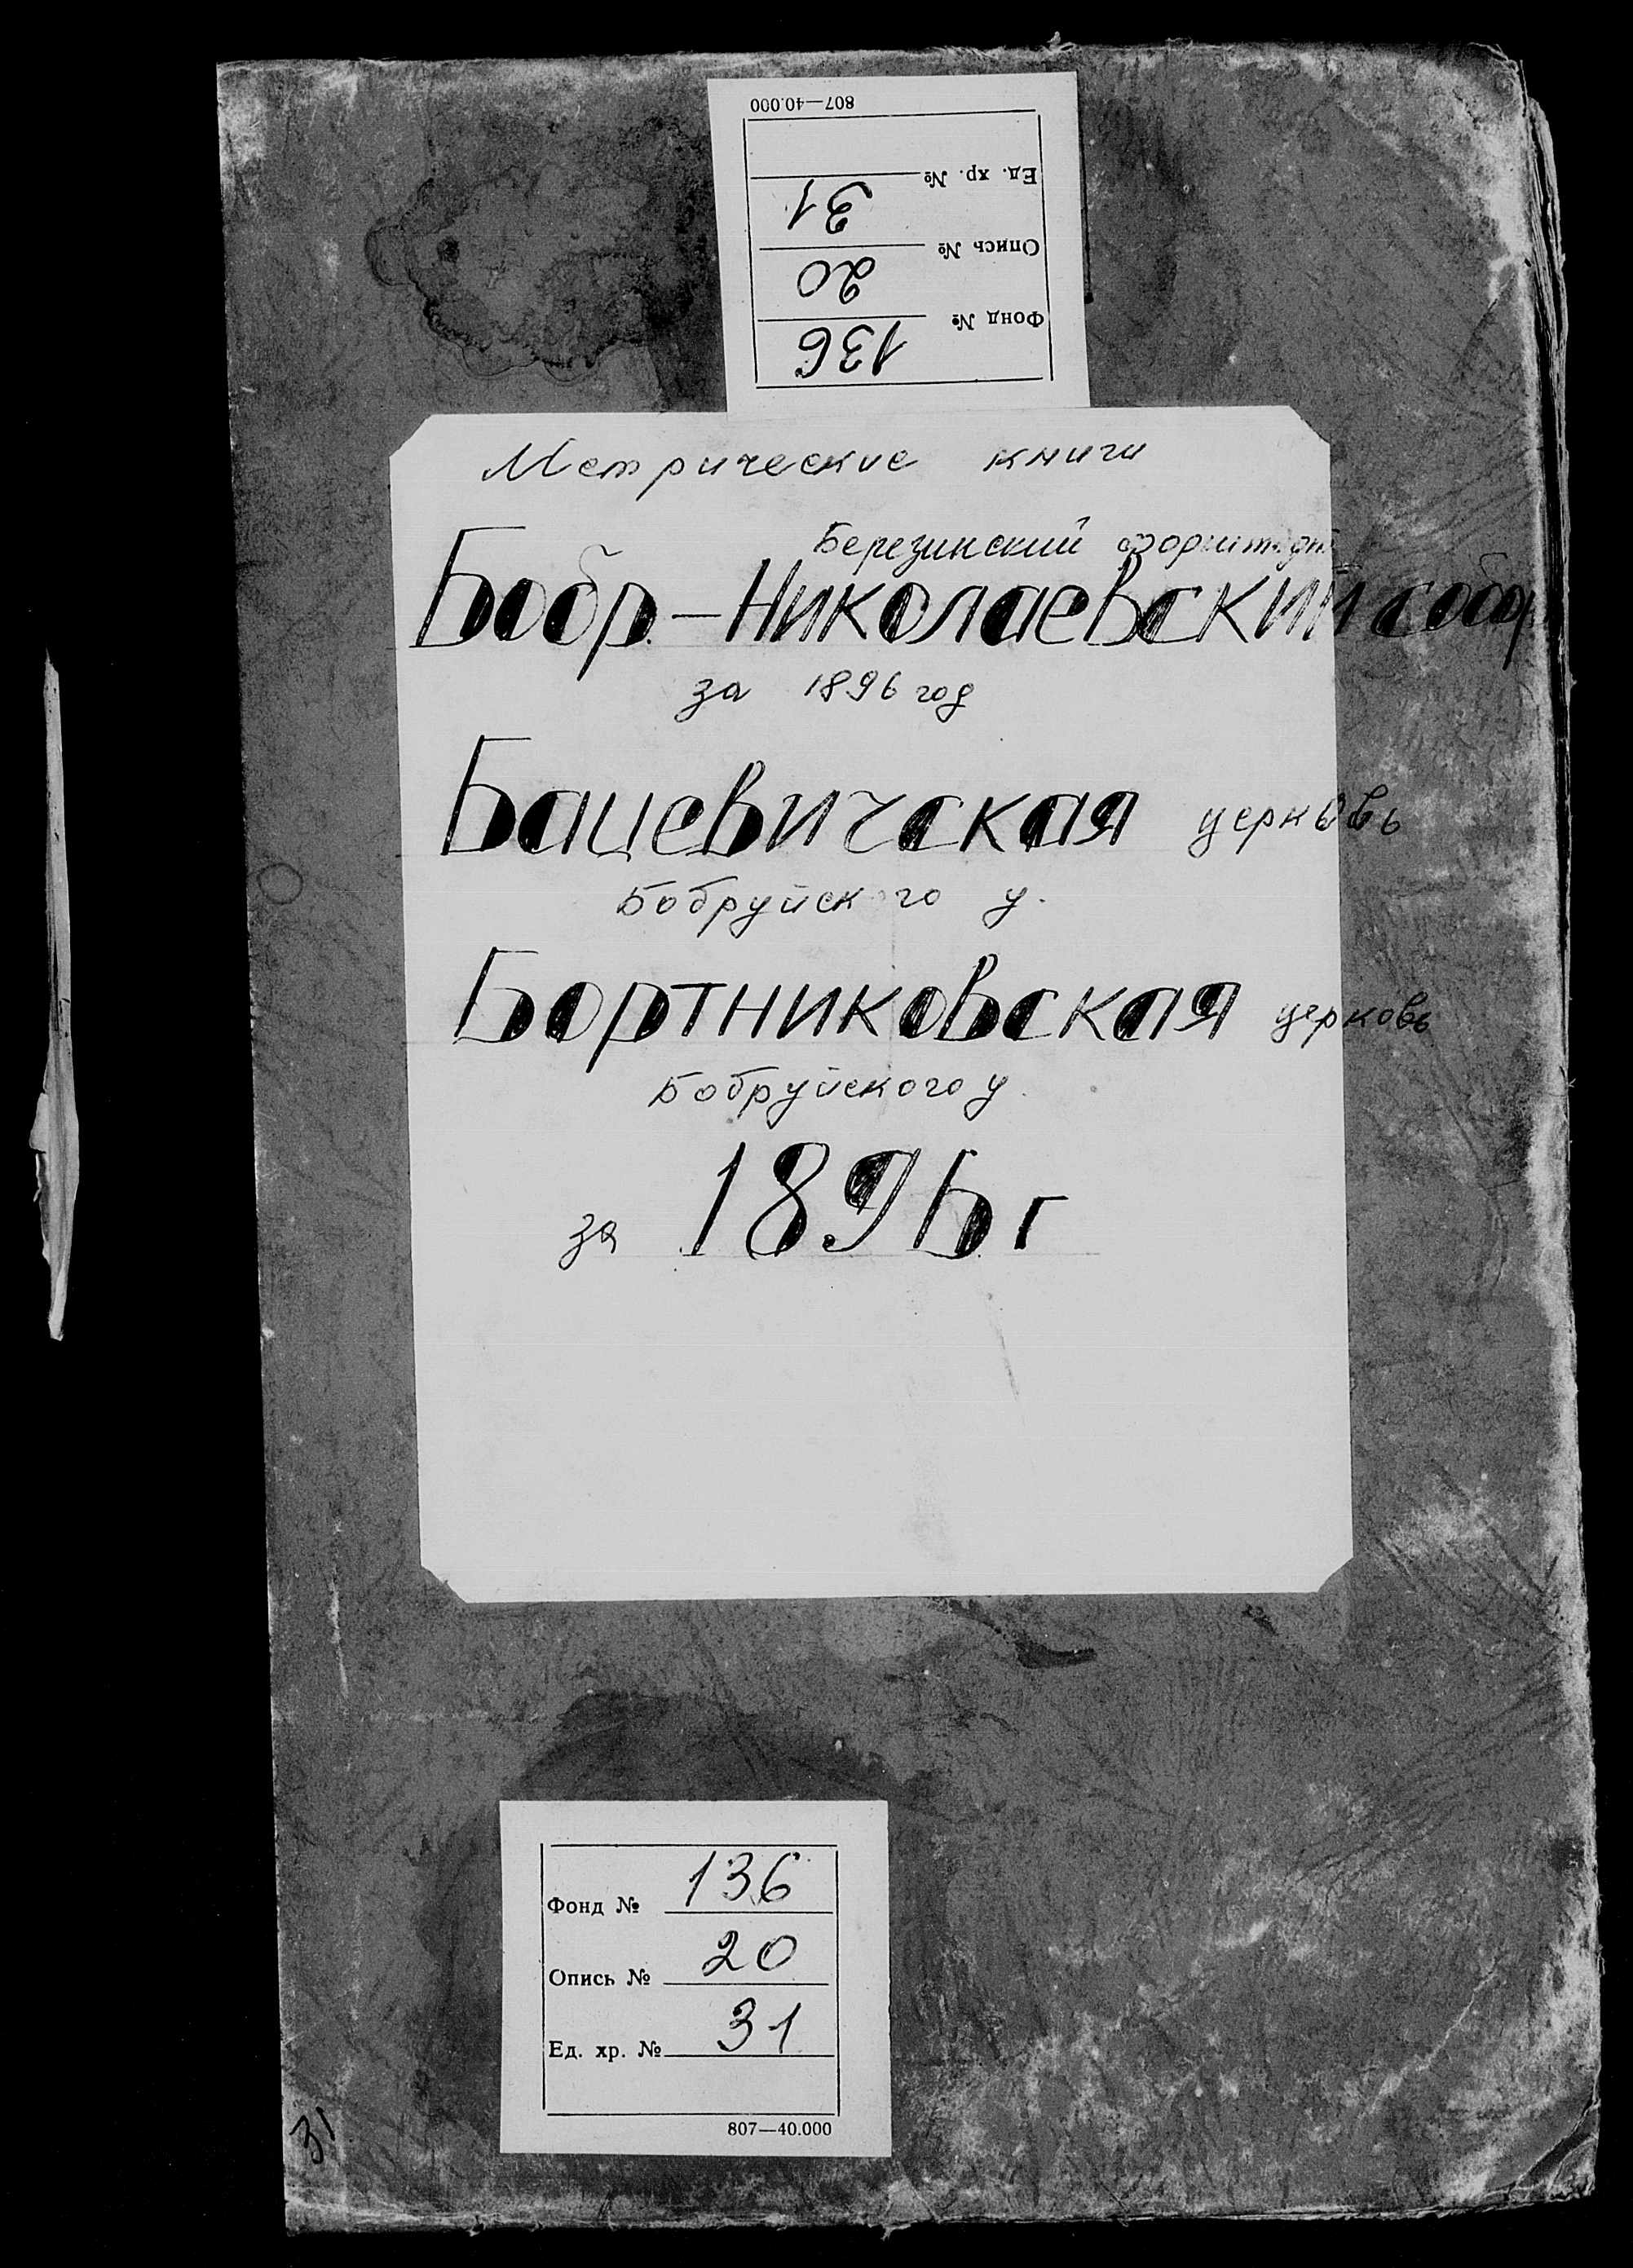 807—40.000
Ед. хр. № 31
Опись № 20
Фонд № 136
Метрические книги
Березинский форштадт
Бобр.-Николаевский собор
за 1896 год
Бацевичская церковь
Бобруйского у.
Бортниковская церковь
Бобруйского у.
за 1896 г
Фонд № 136
Опись № 20
Ед. хр. № 31
807—40.000
31